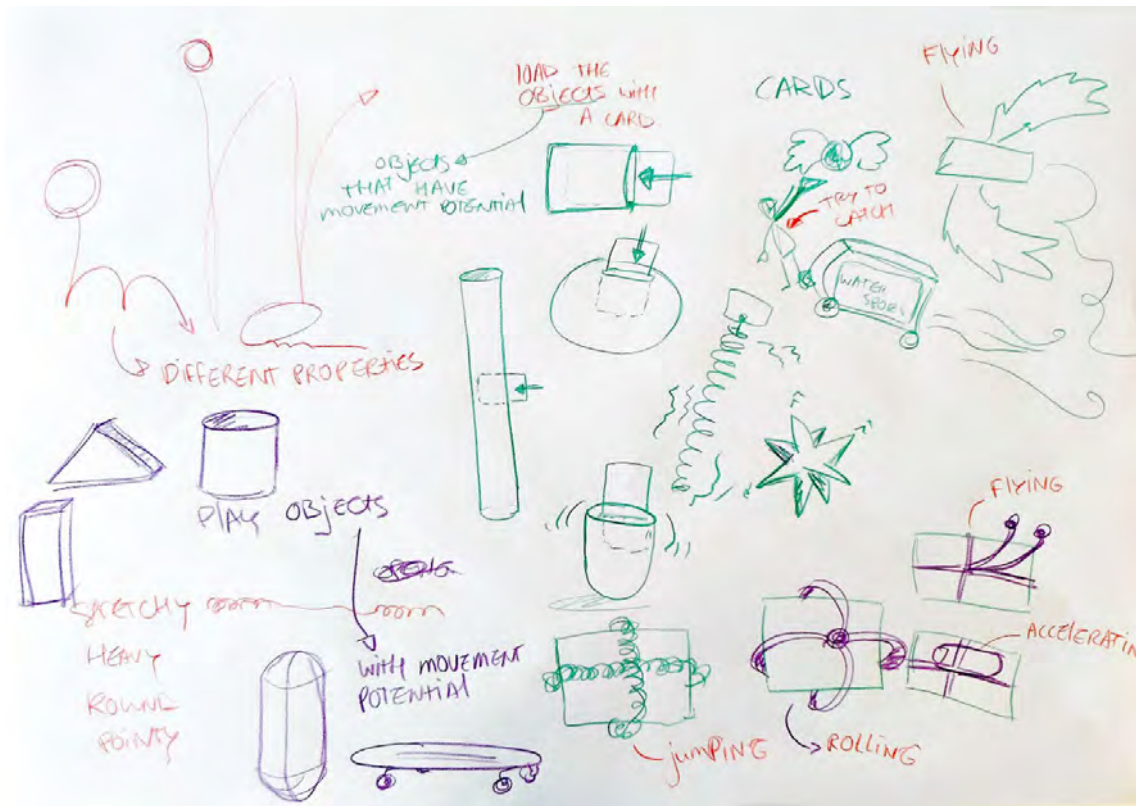 LOAD THE
OBJECTS WITH
A CARD
OBJECTS
THAT HAVE
MOVEMENT POTENTIAL
CARDS
FLYING
TRY TO
CATCH
WATER
DIFFERENT PROPERTIES
PLAY OBJECTS
WITH MOVEMENT
POTENTIAL
HEAVY
ROUND
POINTY
FLYING
ACCELERATIN
jumPING
ROLLING